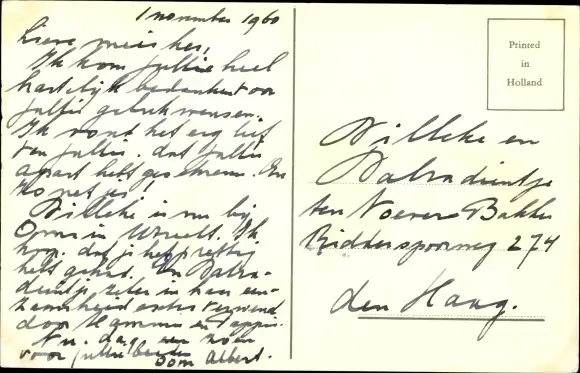 1 november 1960
Lieve meisjes,
Ik kom jullie heel
hartelijk bedanken voor
jullie gelukwensen.
Ik vond het erg lief
van jullie. dat jullie
apart hebt geschreven. En
zo netjes!
Willeke is nu bij
Oma in Utrecht. Ik
hoop dat je het prettig
hebt gehad. En
zeker in haar een-
zaamheid extra verwend
door Mamma en Pappie.
Nu, dag, een zoen
voor jullie beiden Oom Albert.
Printed
in
Holland
Willeke en
ten Noever Bakker
Ridderspoorweg 274
den Haag.